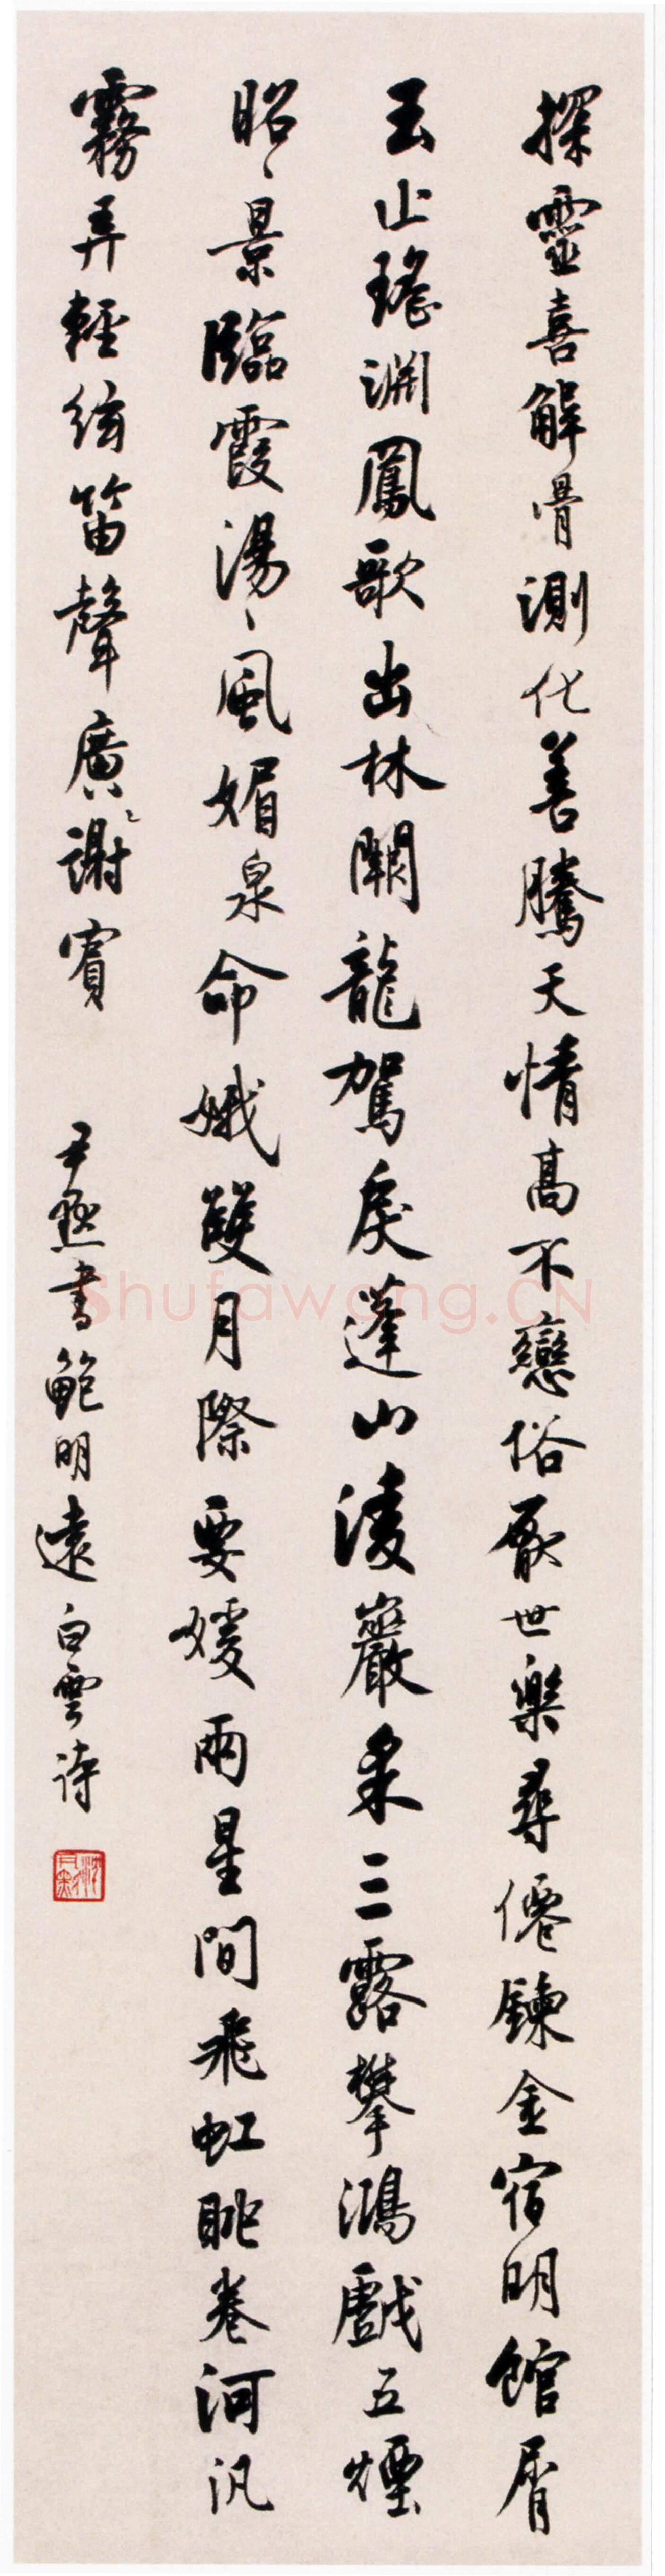 探靈喜解骨測化善騰天情高不戀俗厭世樂尋僊鍊金宿明館屑
玉止瑤淵鳳歌出林闕龍駕戾蓬山淩巖采三露攀鴻戲五煙
昭〻景臨霞湯〻風媚泉命娥雙月際要媛兩星間飛虹眺卷河汎
霧弄輕絃笛聲廣〻謝賓
尹默書鮑明遠白雲詩
沈尹默
Shufawang.CN